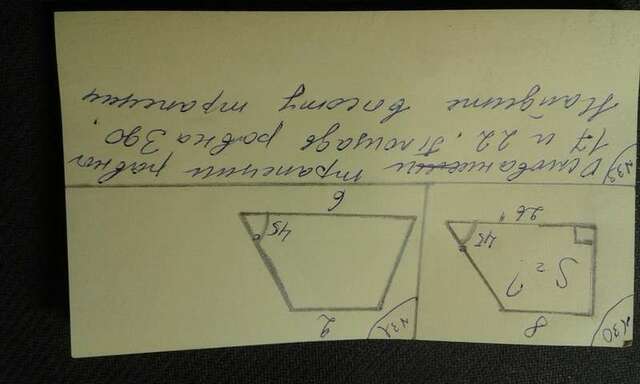 №30
8
S = ?
45°
№31
2
45°
6
№32
Основания трапеции равны
17 и 22. Площадь равна 390.
Найдите высоту трапеции